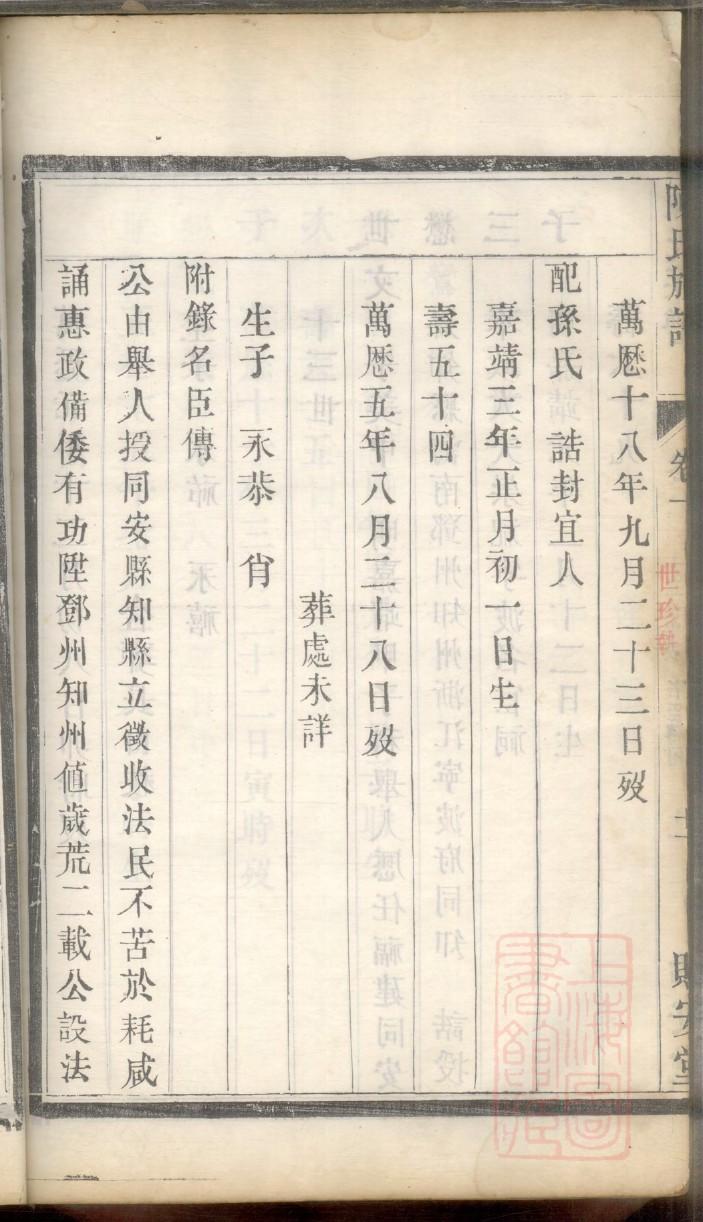 陳氏族譜 卷一 世珍執 十二 貽安堂
萬厯十八年九月二十三日歿
配孫氏 誥封宜人
嘉靖三年正月初一日生
壽五十四
萬厯五年八月二十八日歿
葬處未詳
生子 永恭 肖
附錄名臣傳
公由舉人授同安縣知縣立徵收法民不苦於耗咸
誦惠政備倭有功陞鄧州知州值歲荒二載公設法
上海圖書館藏